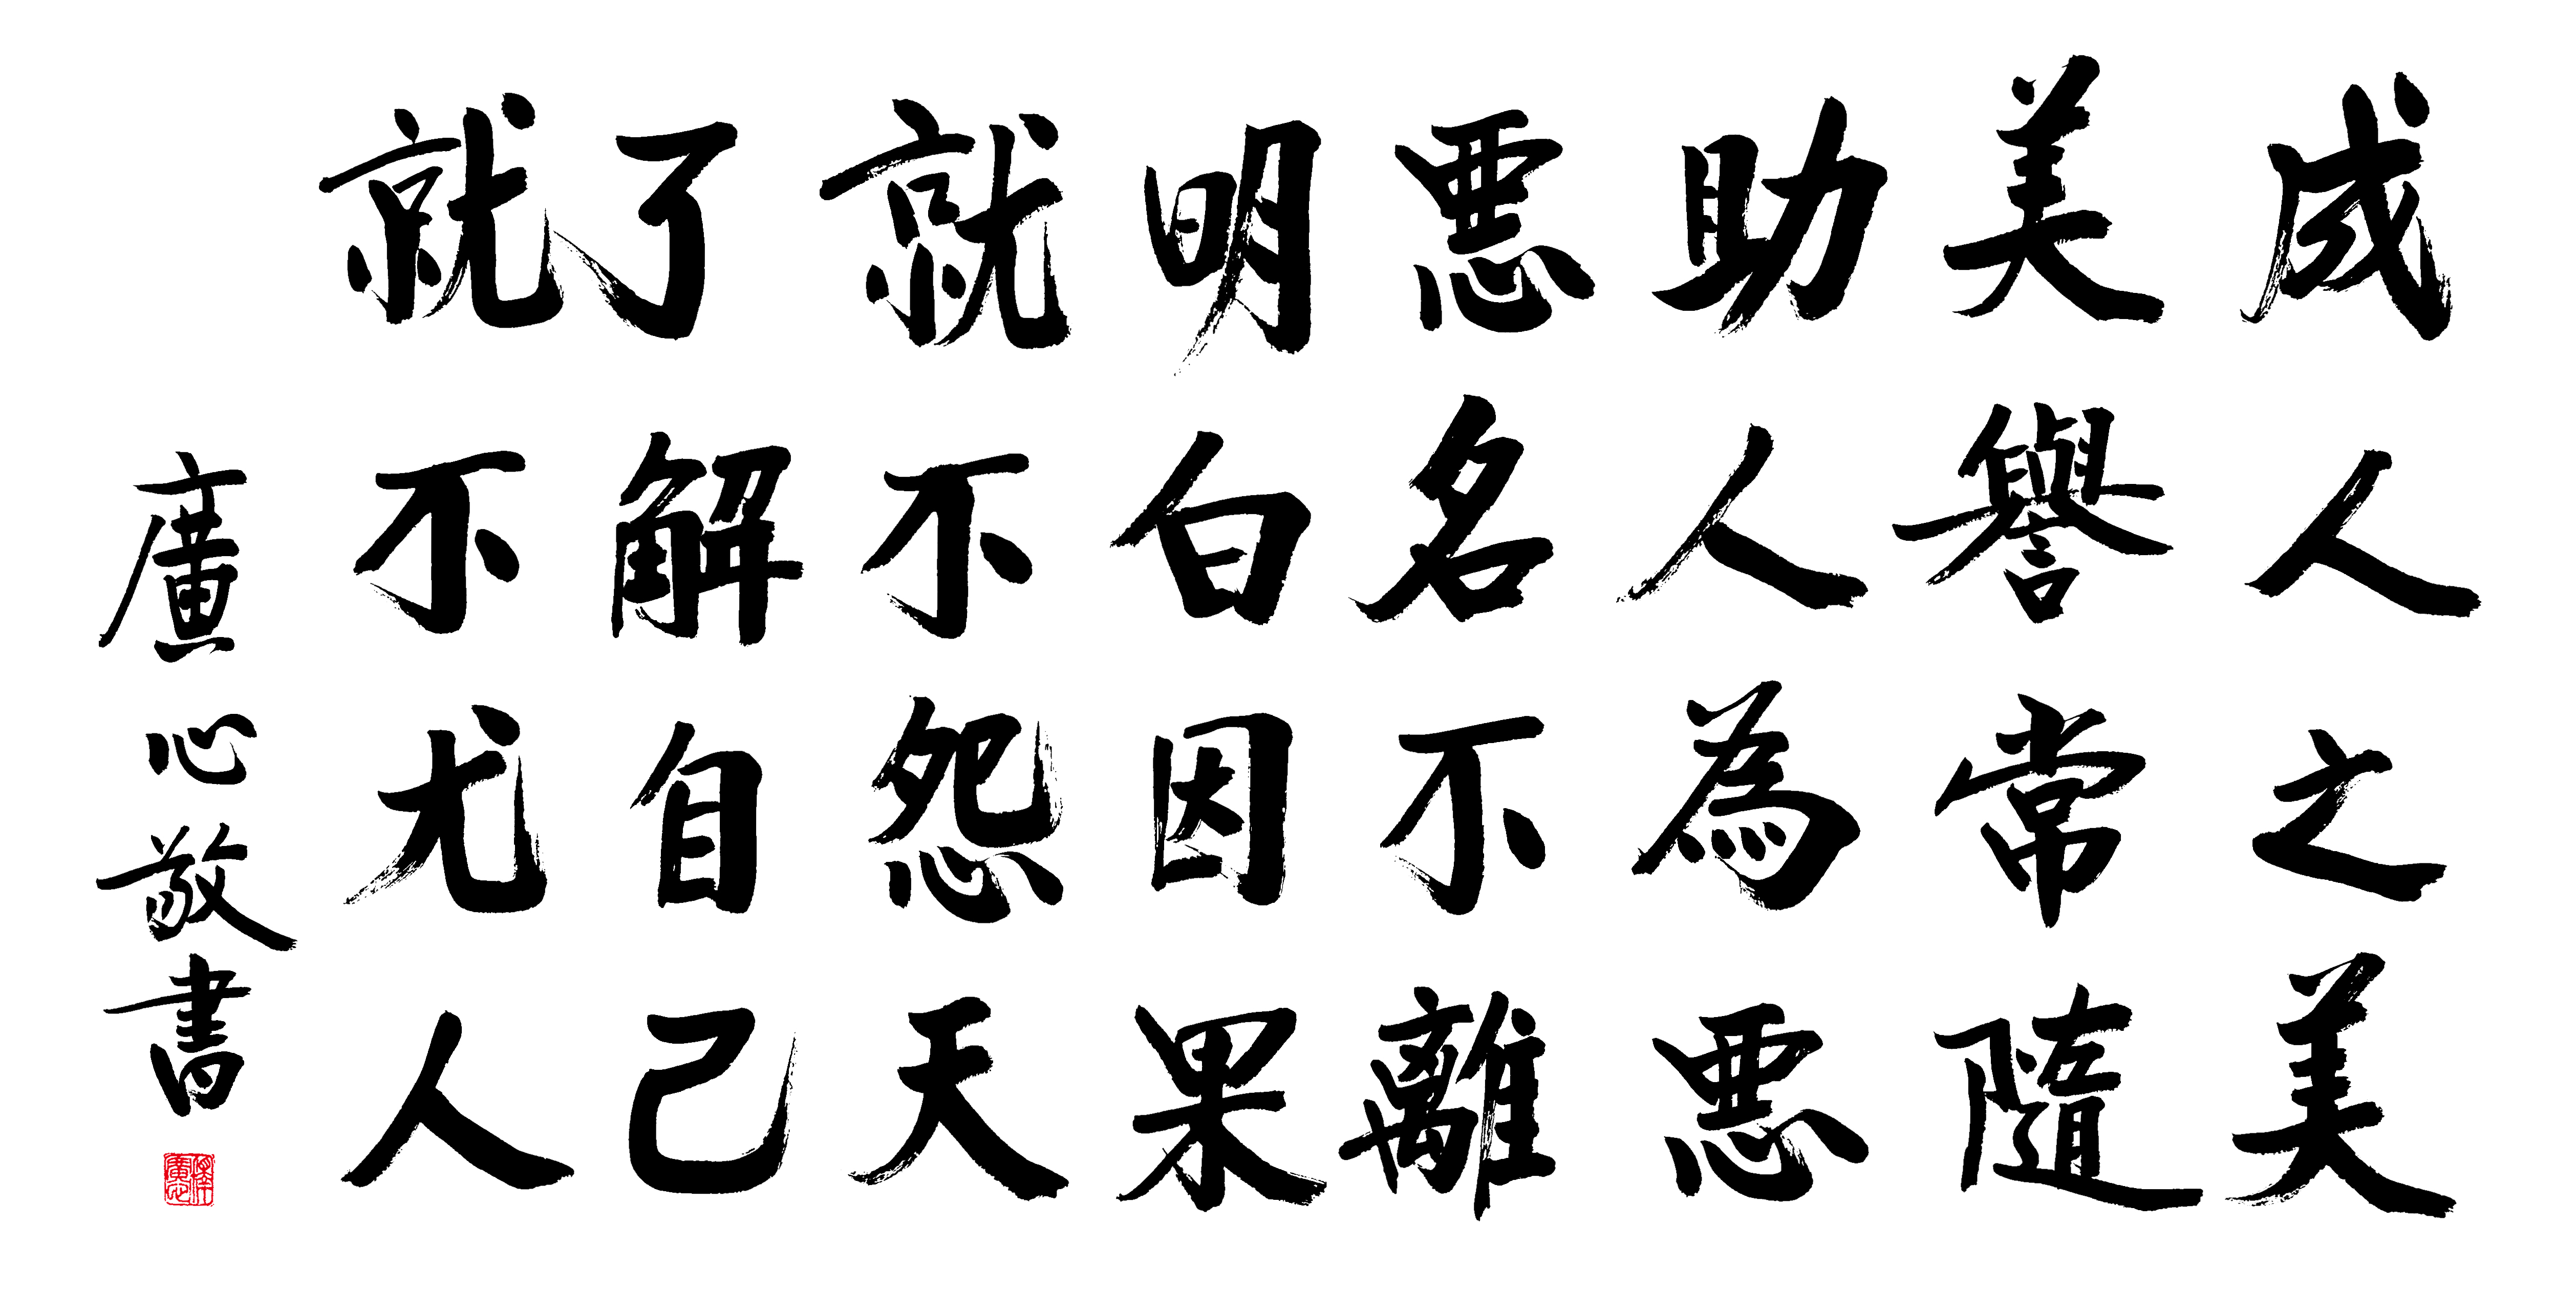 成人之美
美譽常隨
助人為惡
惡名不離
明白因果
就不怨天
了解自己
就不尤人
廣心敬書